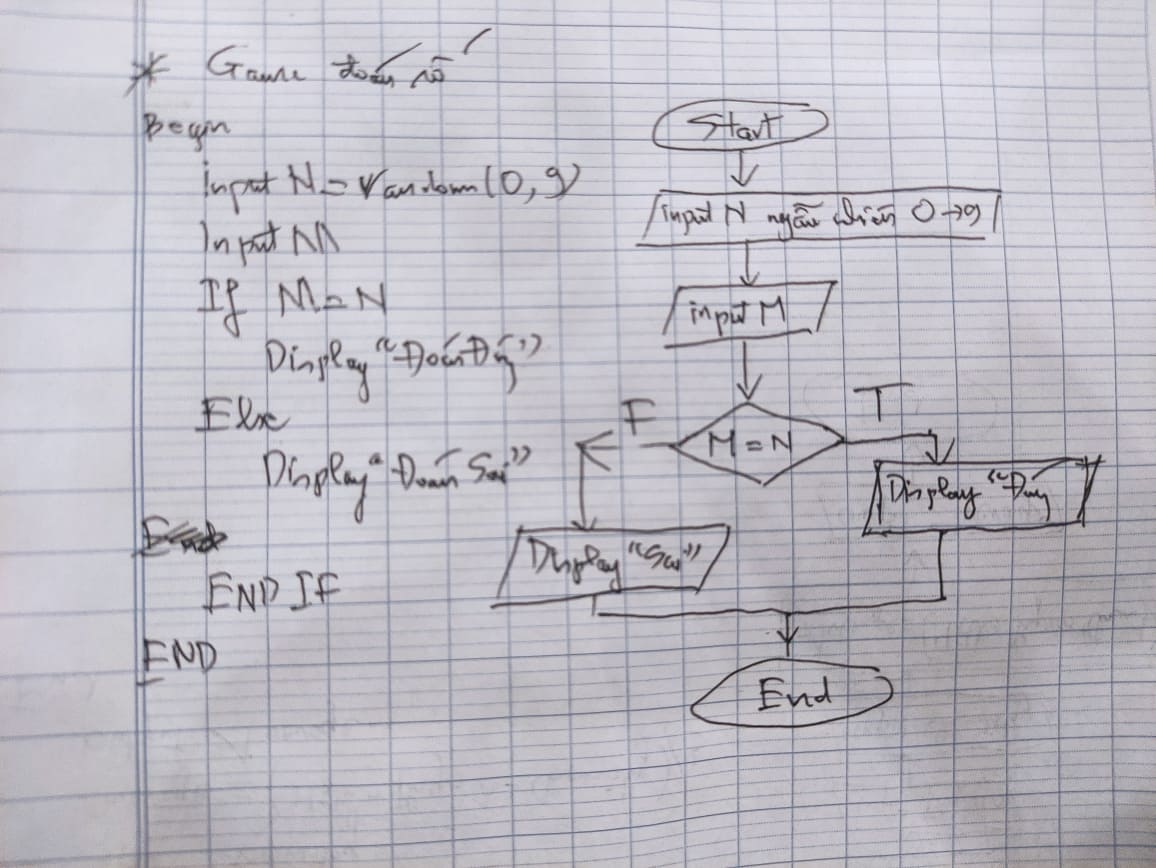 * Game đoán số
Begin
input N = random(0,9)
Input M
If M = N
Display "Đoán Đúng"
Else
Display "Đoán Sai"
End
END IF
END
Start
input N ngẫu nhiên 0→9
input M
M = N
F
T
Display "Sai"
Display "Đúng
End